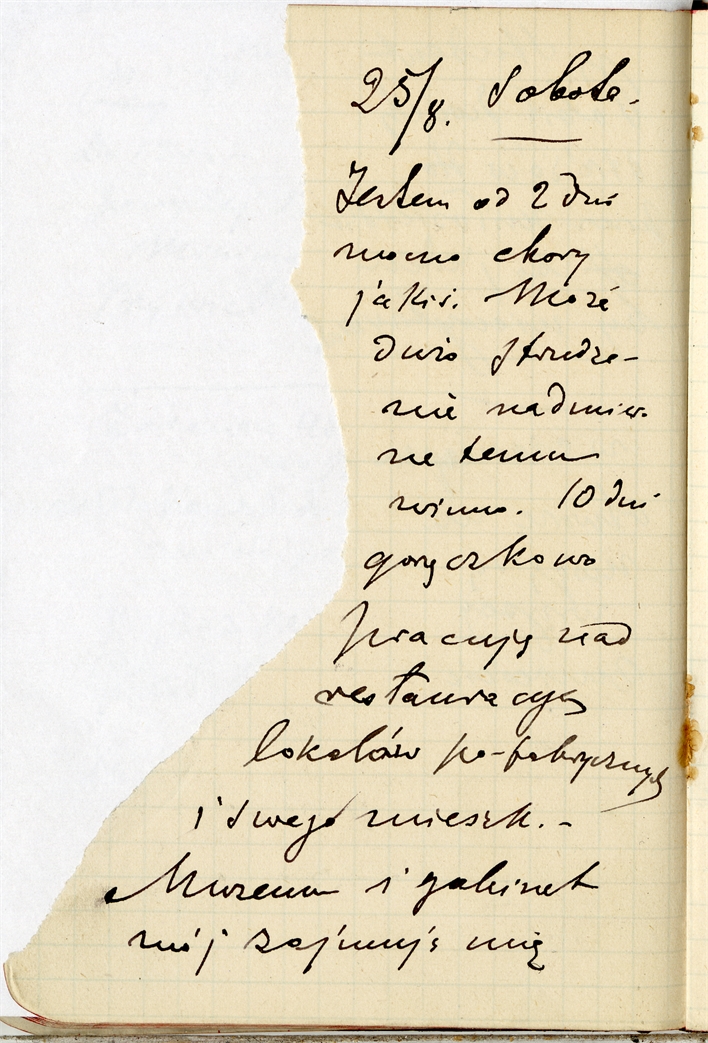 25/8. Sobota.
Jestem od 2 dni
mocno chory
jakiś. Może
dwie
nie nadmier-
ne temu
winno. 10 dni
gorączkowo
pracuję nad
restauracyą
lokalów po-fabrycznych
i swego mieszk. -
Muzeum i gabinet
mój zajmuje mię